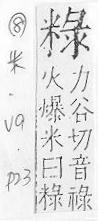 粶
力谷切音祿
火爆米曰粶
⑧ 米 . V9 .